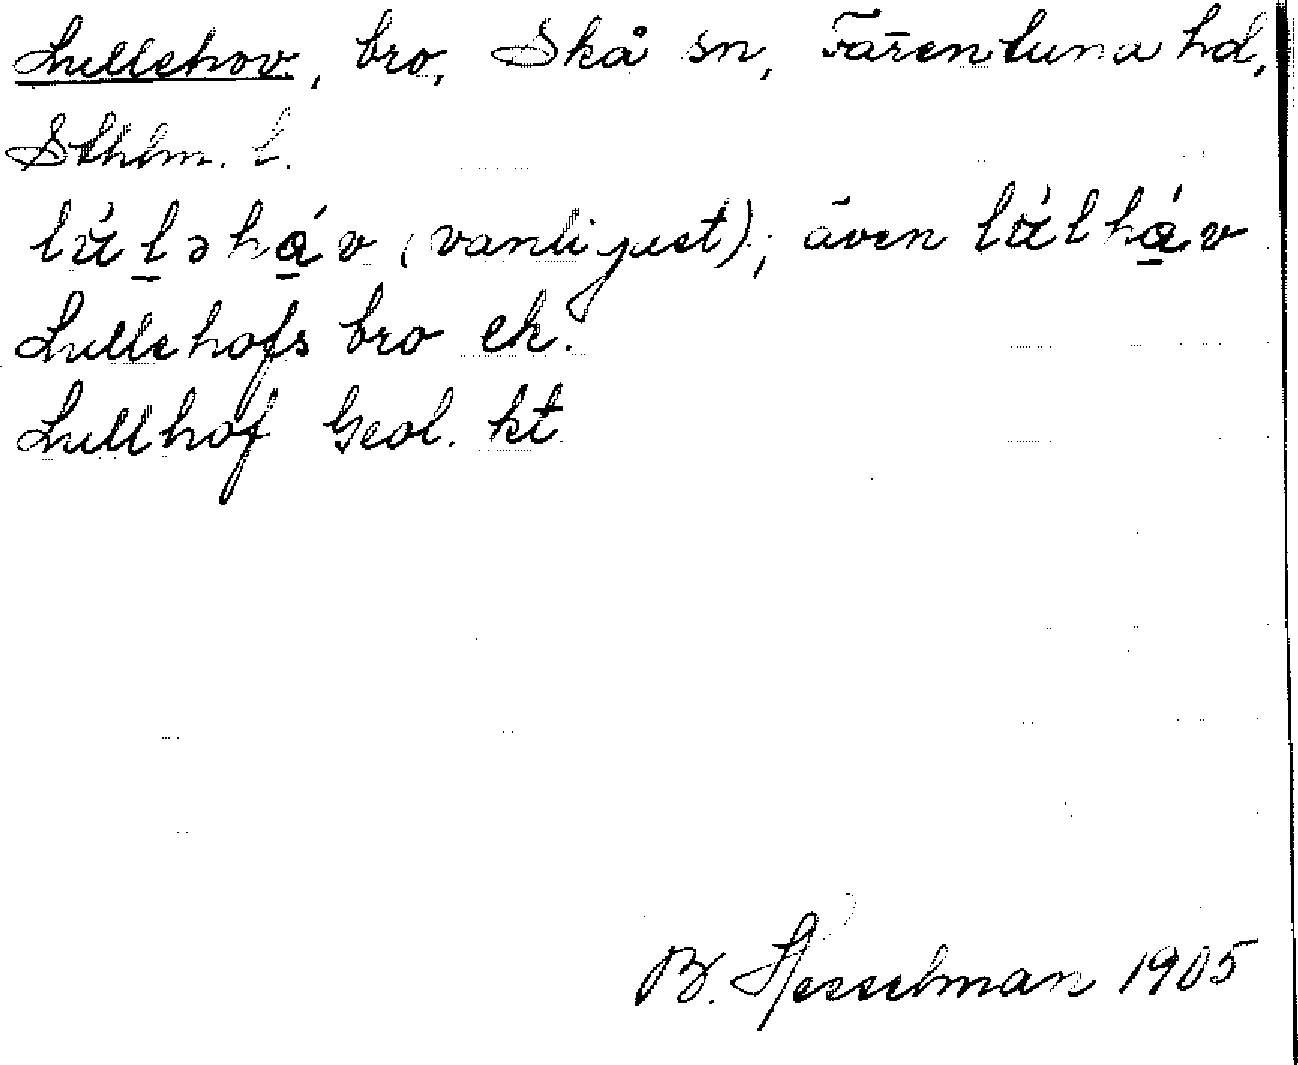 Lullehov, bro, Skå sn, Färentuna hd,
Sthlm. l.
(vanligast); även
Lullehofs bro ek.
Lullhof Geol. kt
B. Hesselman 1905